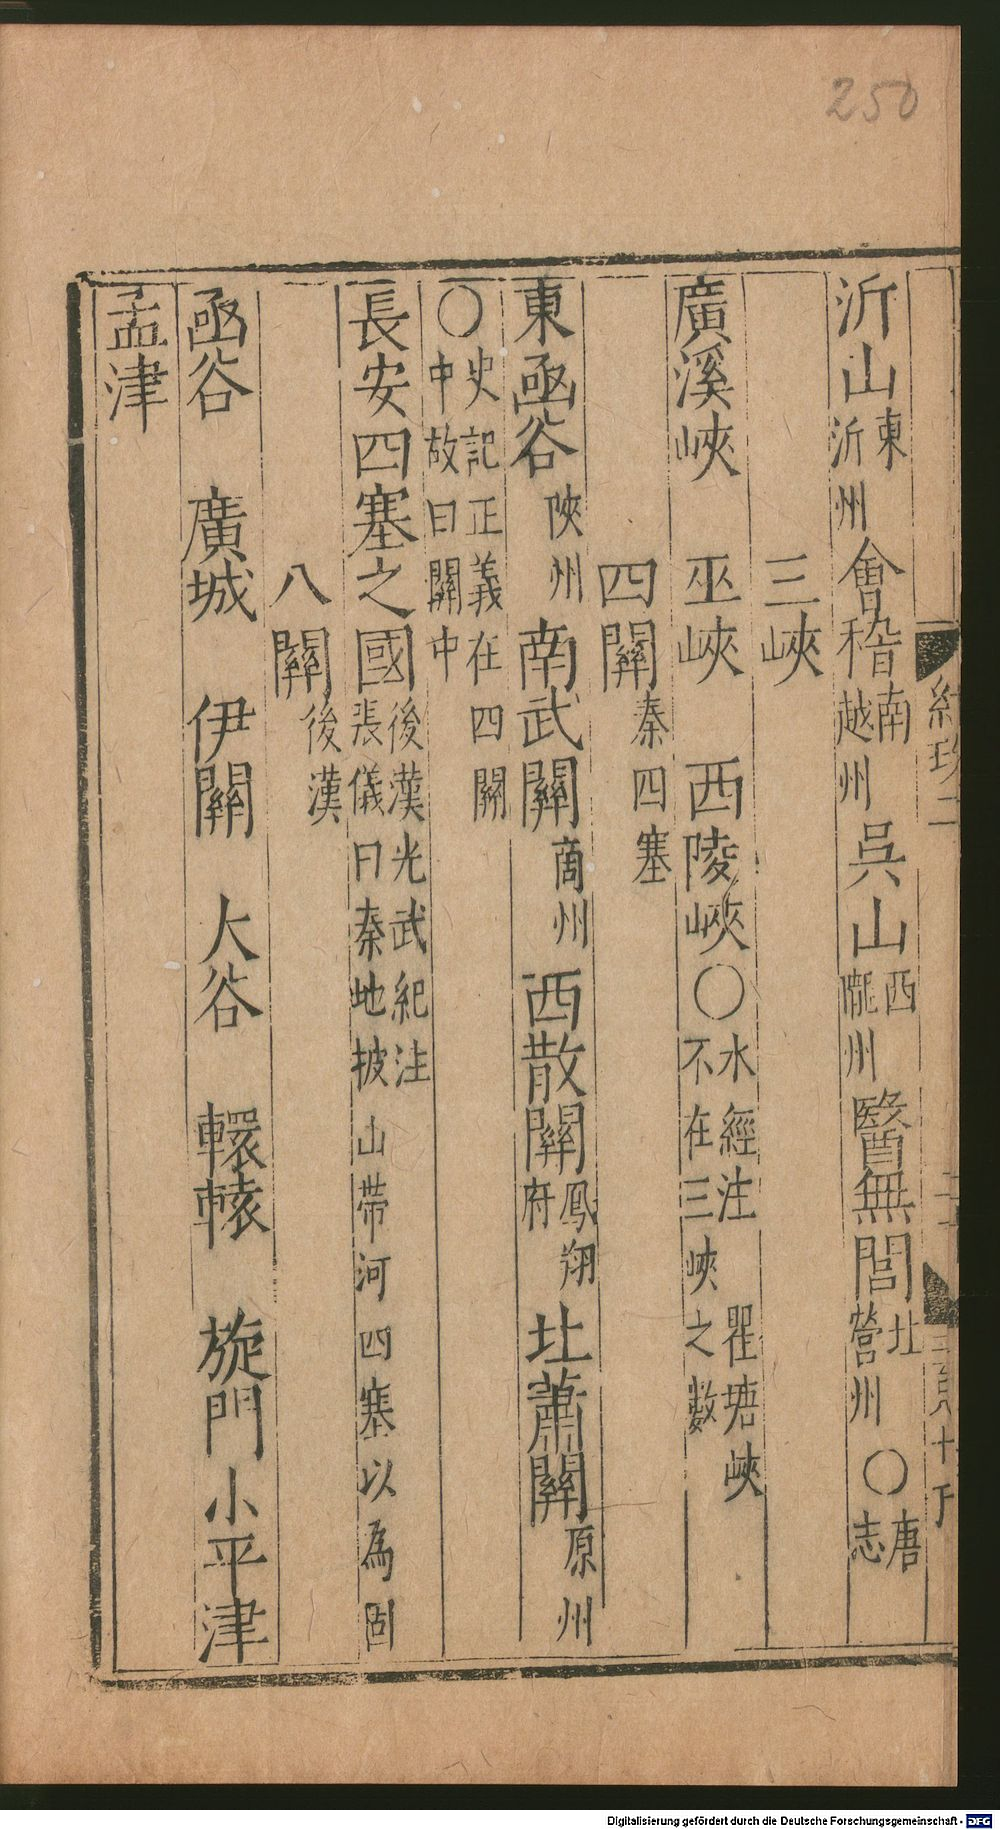 250
沂山東沂州會稽南越州吳山西隴州醫無閭北營州〇唐志
三峽
廣溪峽 巫峽 西陵峽〇水經注瞿塘峽不在三峽之數
四關秦四塞
東函谷陝州南武關商州西散關鳳翔府北蕭關原州
〇史記正義在四關中故曰關中
長安四塞之國後漢光武紀注張儀曰秦地披山帶河四塞以為固
八關後漢
函谷 廣城 伊關 大谷 轘轅 旋門 小平津
孟津
Digitalisierung gefördert durch die Deutsche Forschungsgemeinschaft - DFG